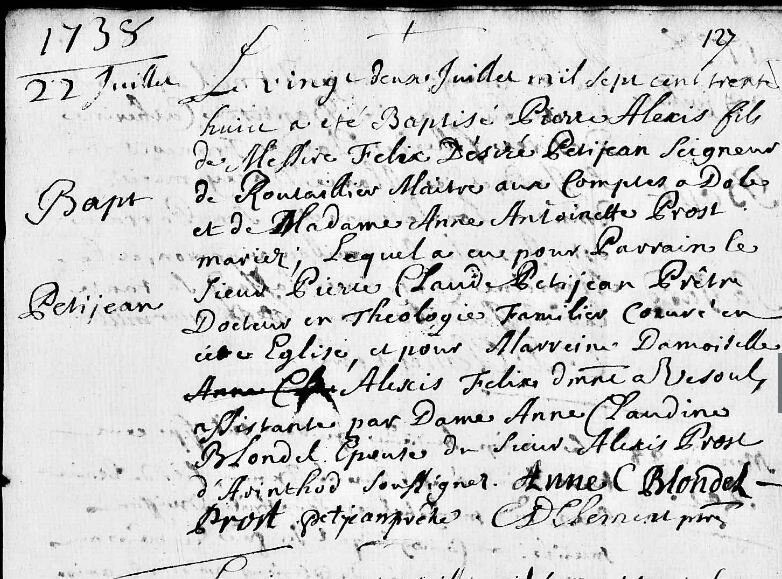 1738
127
22 Juillet
Le vingt deux Juillet mil sept cent trente
huit a été Baptisé Pierre Alexis fils
de Messire Felix Désiré Petijean Seigneur
de Rontaillier Maitre aux Comptes a Dole
Bapt
et de Madame Anne Antoinette Prost
mariez; Lequel a eu pour Parrain le
Petijean
Sieur Pierre Claude Petijean Prêtre
Docteur en Theologie Familier en
Eglise, et pour Marreine Damoiselle
Anne Alexis Felix a Vesoul,
assistante par Dame Anne Claudine
Blondel Epouse du Sieur Alexis Prost
d'Arinthod soussignez. Anne C Blondel
Prost petijean prêtre Clement ptre